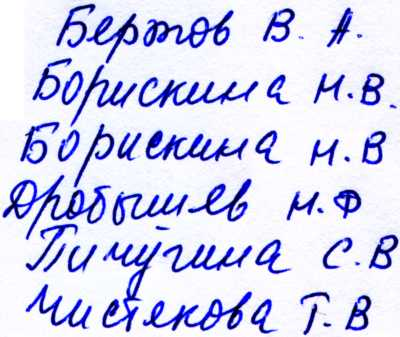 Бержов В. А.
Борискина Н.В.
Борискина Н.В
Дробышев Н.Ф
Пичугина С.В
Чистякова Т.В